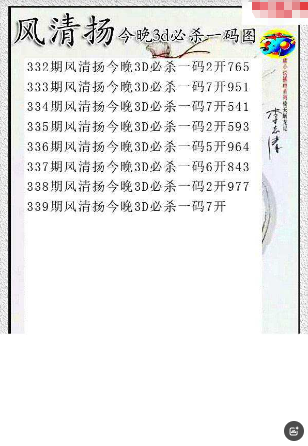 风清扬今晚3d必杀一码图
332期风清扬今晚3D必杀一码2开765
333期风清扬今晚3D必杀一码7开951
334期风清扬今晚3D必杀一码7开541
335期风清扬今晚3D必杀一码2开593
336期风清扬今晚3D必杀一码5开964
337期风清扬今晚3D必杀一码6开843
338期风清扬今晚3D必杀一码2开977
339期风清扬今晚3D必杀一码7开